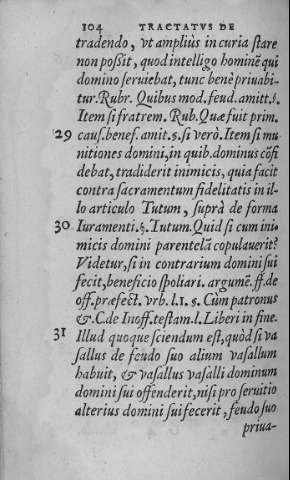 104 TRACTATVS DE
tradendo, vt ampliùs in curia stare
non possit, quod intelligo hominẽ qui
domino seruiebat, tunc benè priuabi-
tur. Rubr. Quibus mod. feud. amitt. §.
Item si fratrem. Rub. Quæ fuit prim.
29 caus. benef. amit. §. si verò. Item si mu
nitiones domini, in quib. dominus cõfi
debat, tradiderit inimicis, quia facit
contra sacramentum fidelitatis in il-
lo articulo Tutum, suprà de forma
30 Iuramenti. §. Tutum. Quid si cum ini-
micis domini parentelã copulauerit?
Videtur, si in contrarium domini sui
fecit, beneficio spoliari. argumẽ. ff. de
off. præfect. vrb. l. 1. §. Cùm patronus
& C. de Inoff. testam. l. Liberi in fine.
31 Illud quoque sciendum est, quòd si va
sallus de feudo suo alium vasallum
habuit, & vasallus vasalli dominum
domini sui offenderit, nisi pro seruitio
alterius domini sui fecerit, feudo suo
priua-